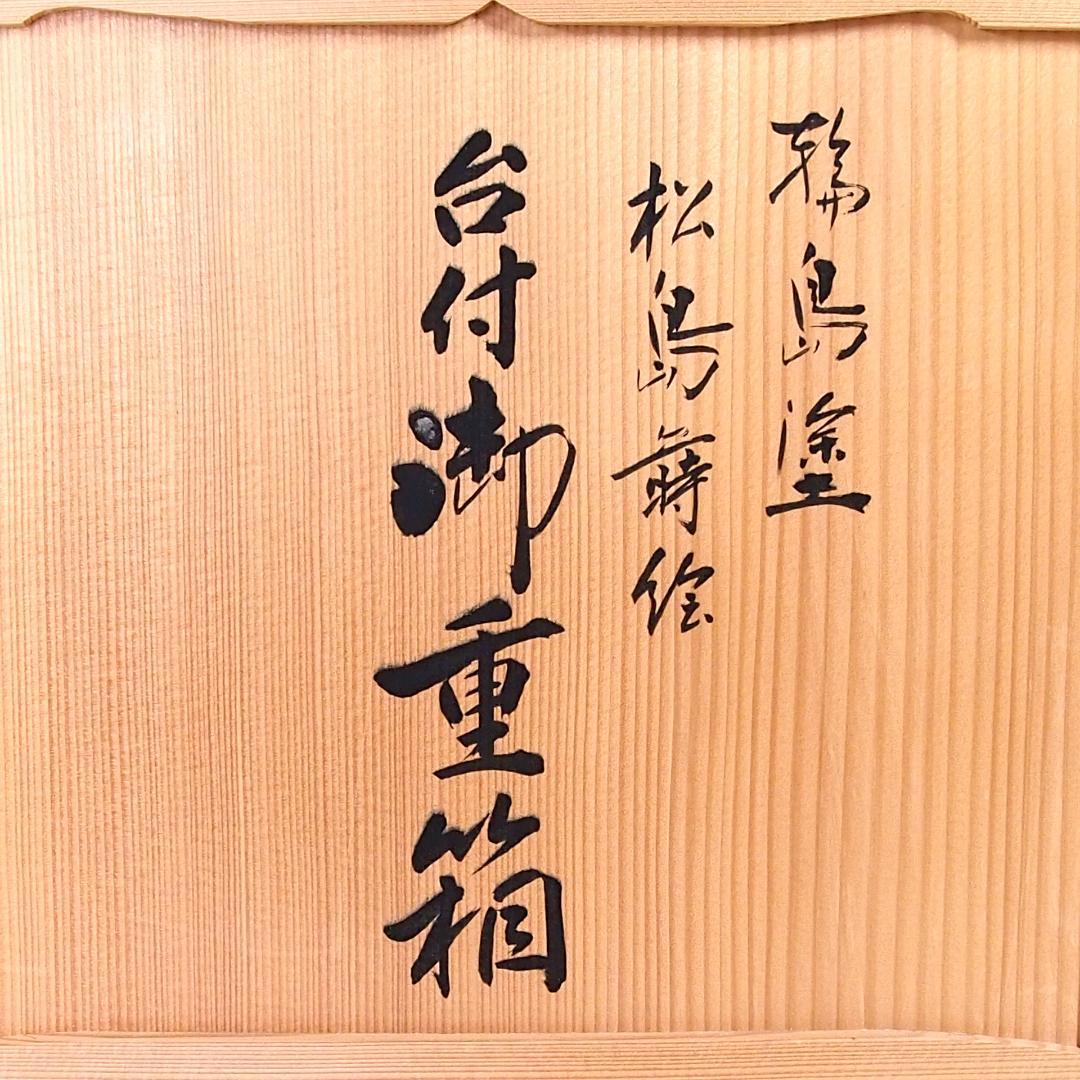 輪島塗
松島蒔絵
台付御重箱